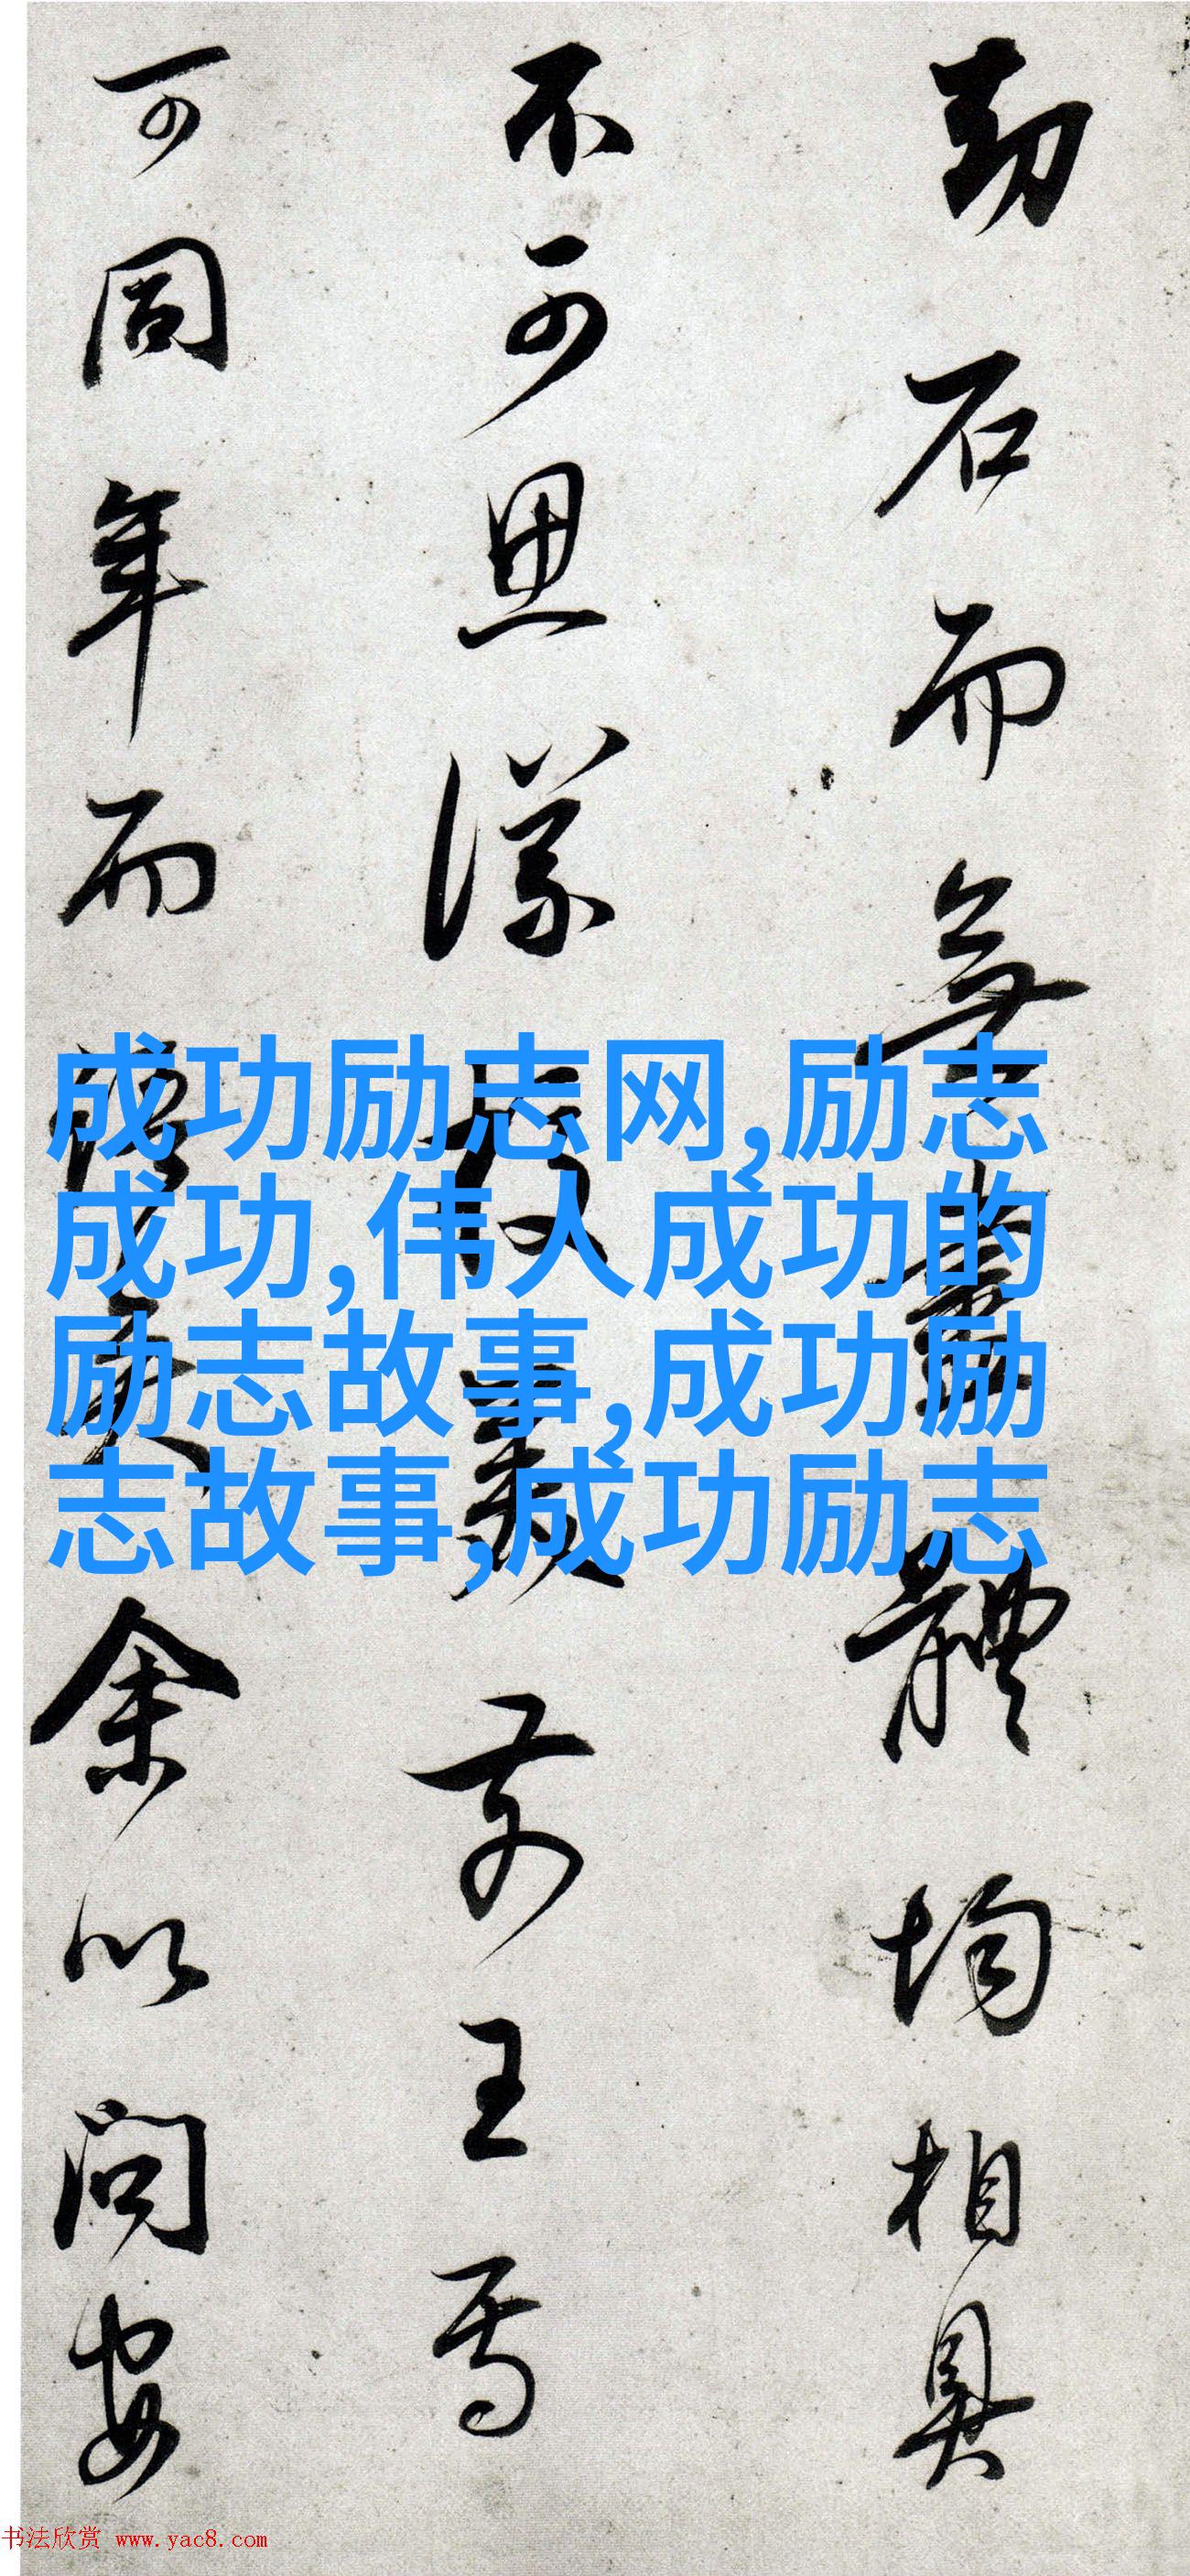 劫石而無體均相具
不可思議校美前王焉
可同年而語矣余以問安
成功励志网,励志
成功,伟人成功的
励志故事,成功励
志故事,成功励志
书法欣赏 www.yac8.com